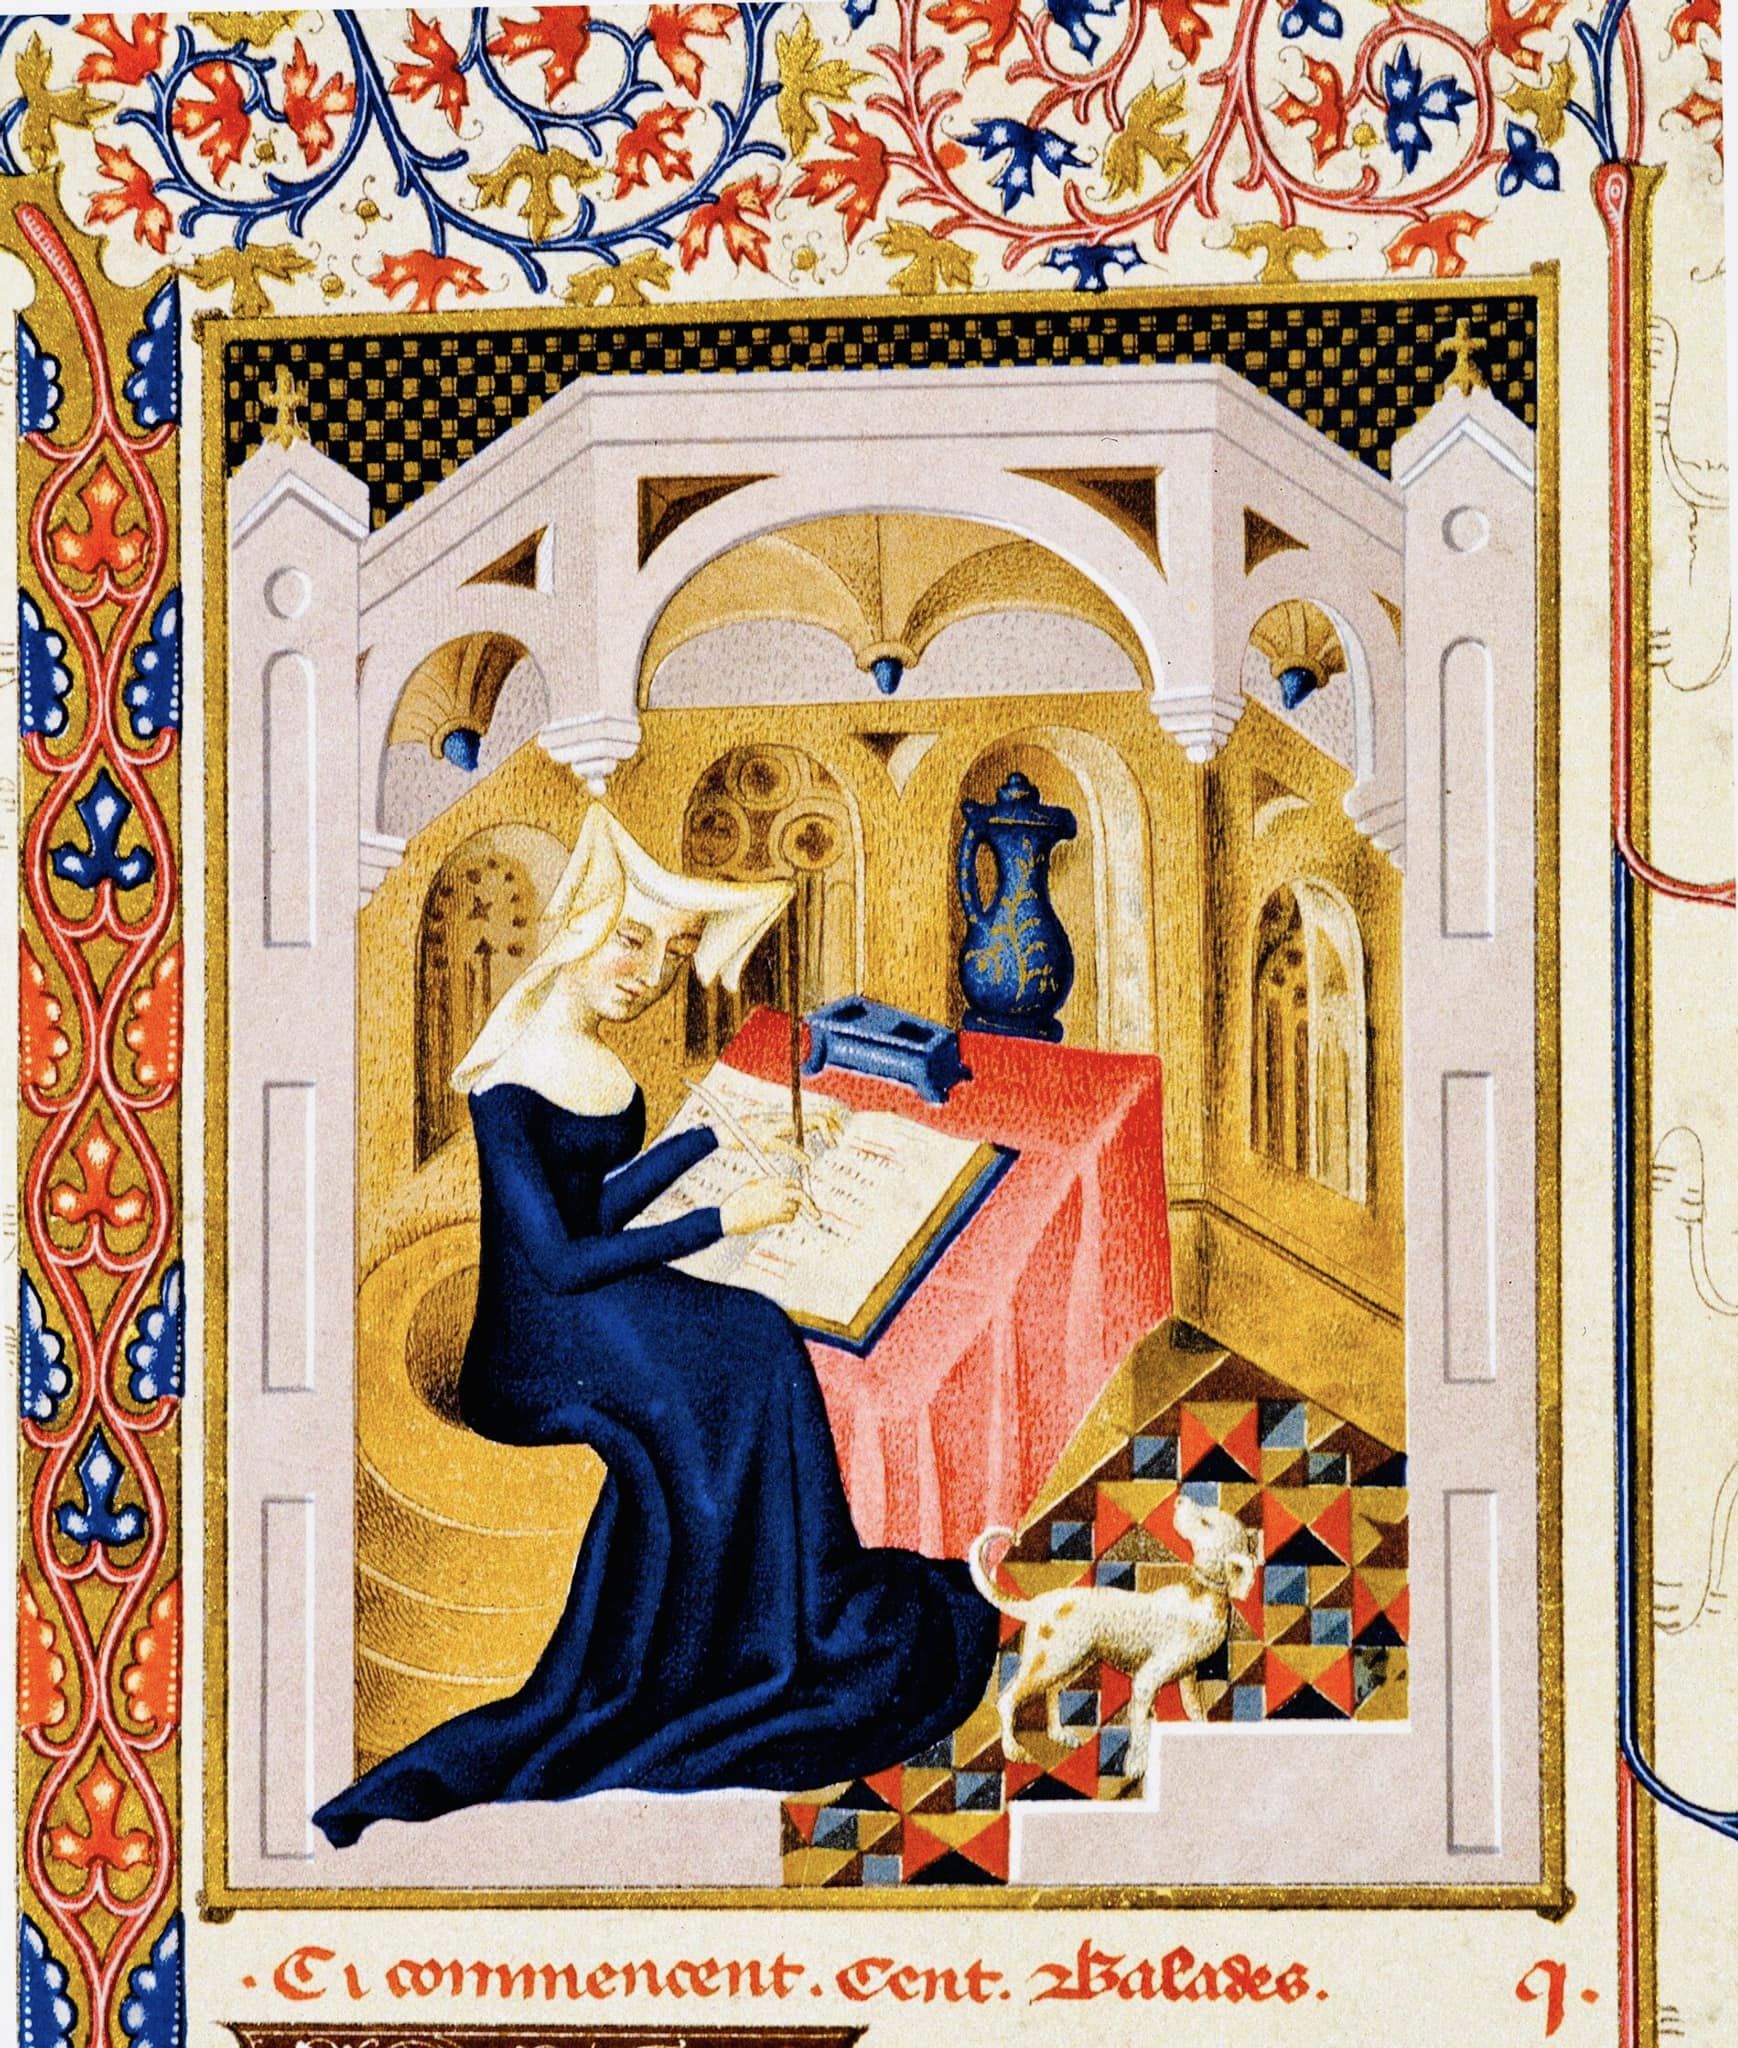 · Ci commencent. Cent. Balades. q.